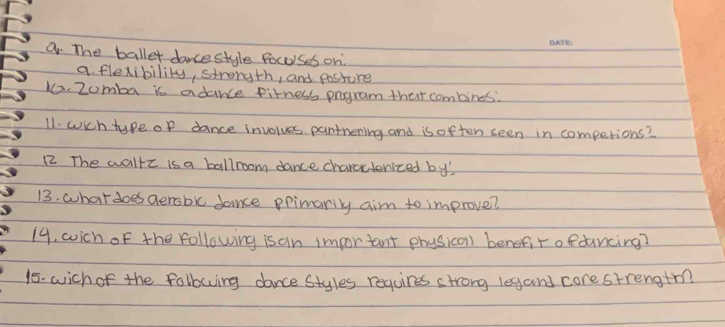 DATE:
9. The ballet dance style focuses on:
a. flexibility, strength, and posture
10. Zumba is a dance fitness program that combines:
11. wich type of dance involves panthnering and is often seen in competions?
12 The waltz is a ballroom dance characterized by:
13. what does aerobic dance primarily aim to improve?
14. wich of the following is an important physical benefit of dancing?
15. wich of the following dance styles requires strong leg and core strength?